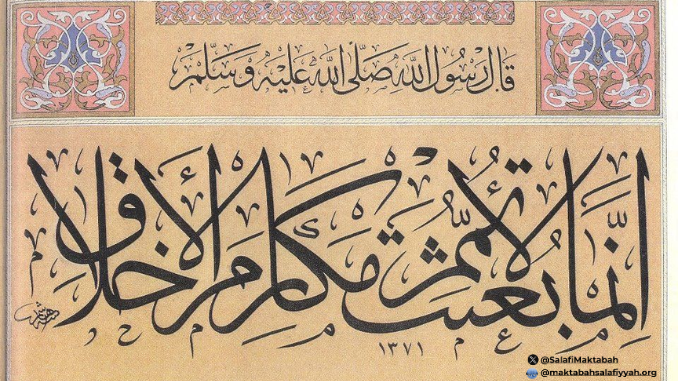 قَالَ رَسُولُ اللَّهِ صَلَّى اللَّهُ عَلَيْهِ وَسَلَّمَ
إِنَّمَا بُعِثْتُ لِأُتَمِّمَ مَكَارِمَ الْأَخْلَاقِ
١٣٧١
@SalafiMaktabah
@maktabahsalafiyyah.org